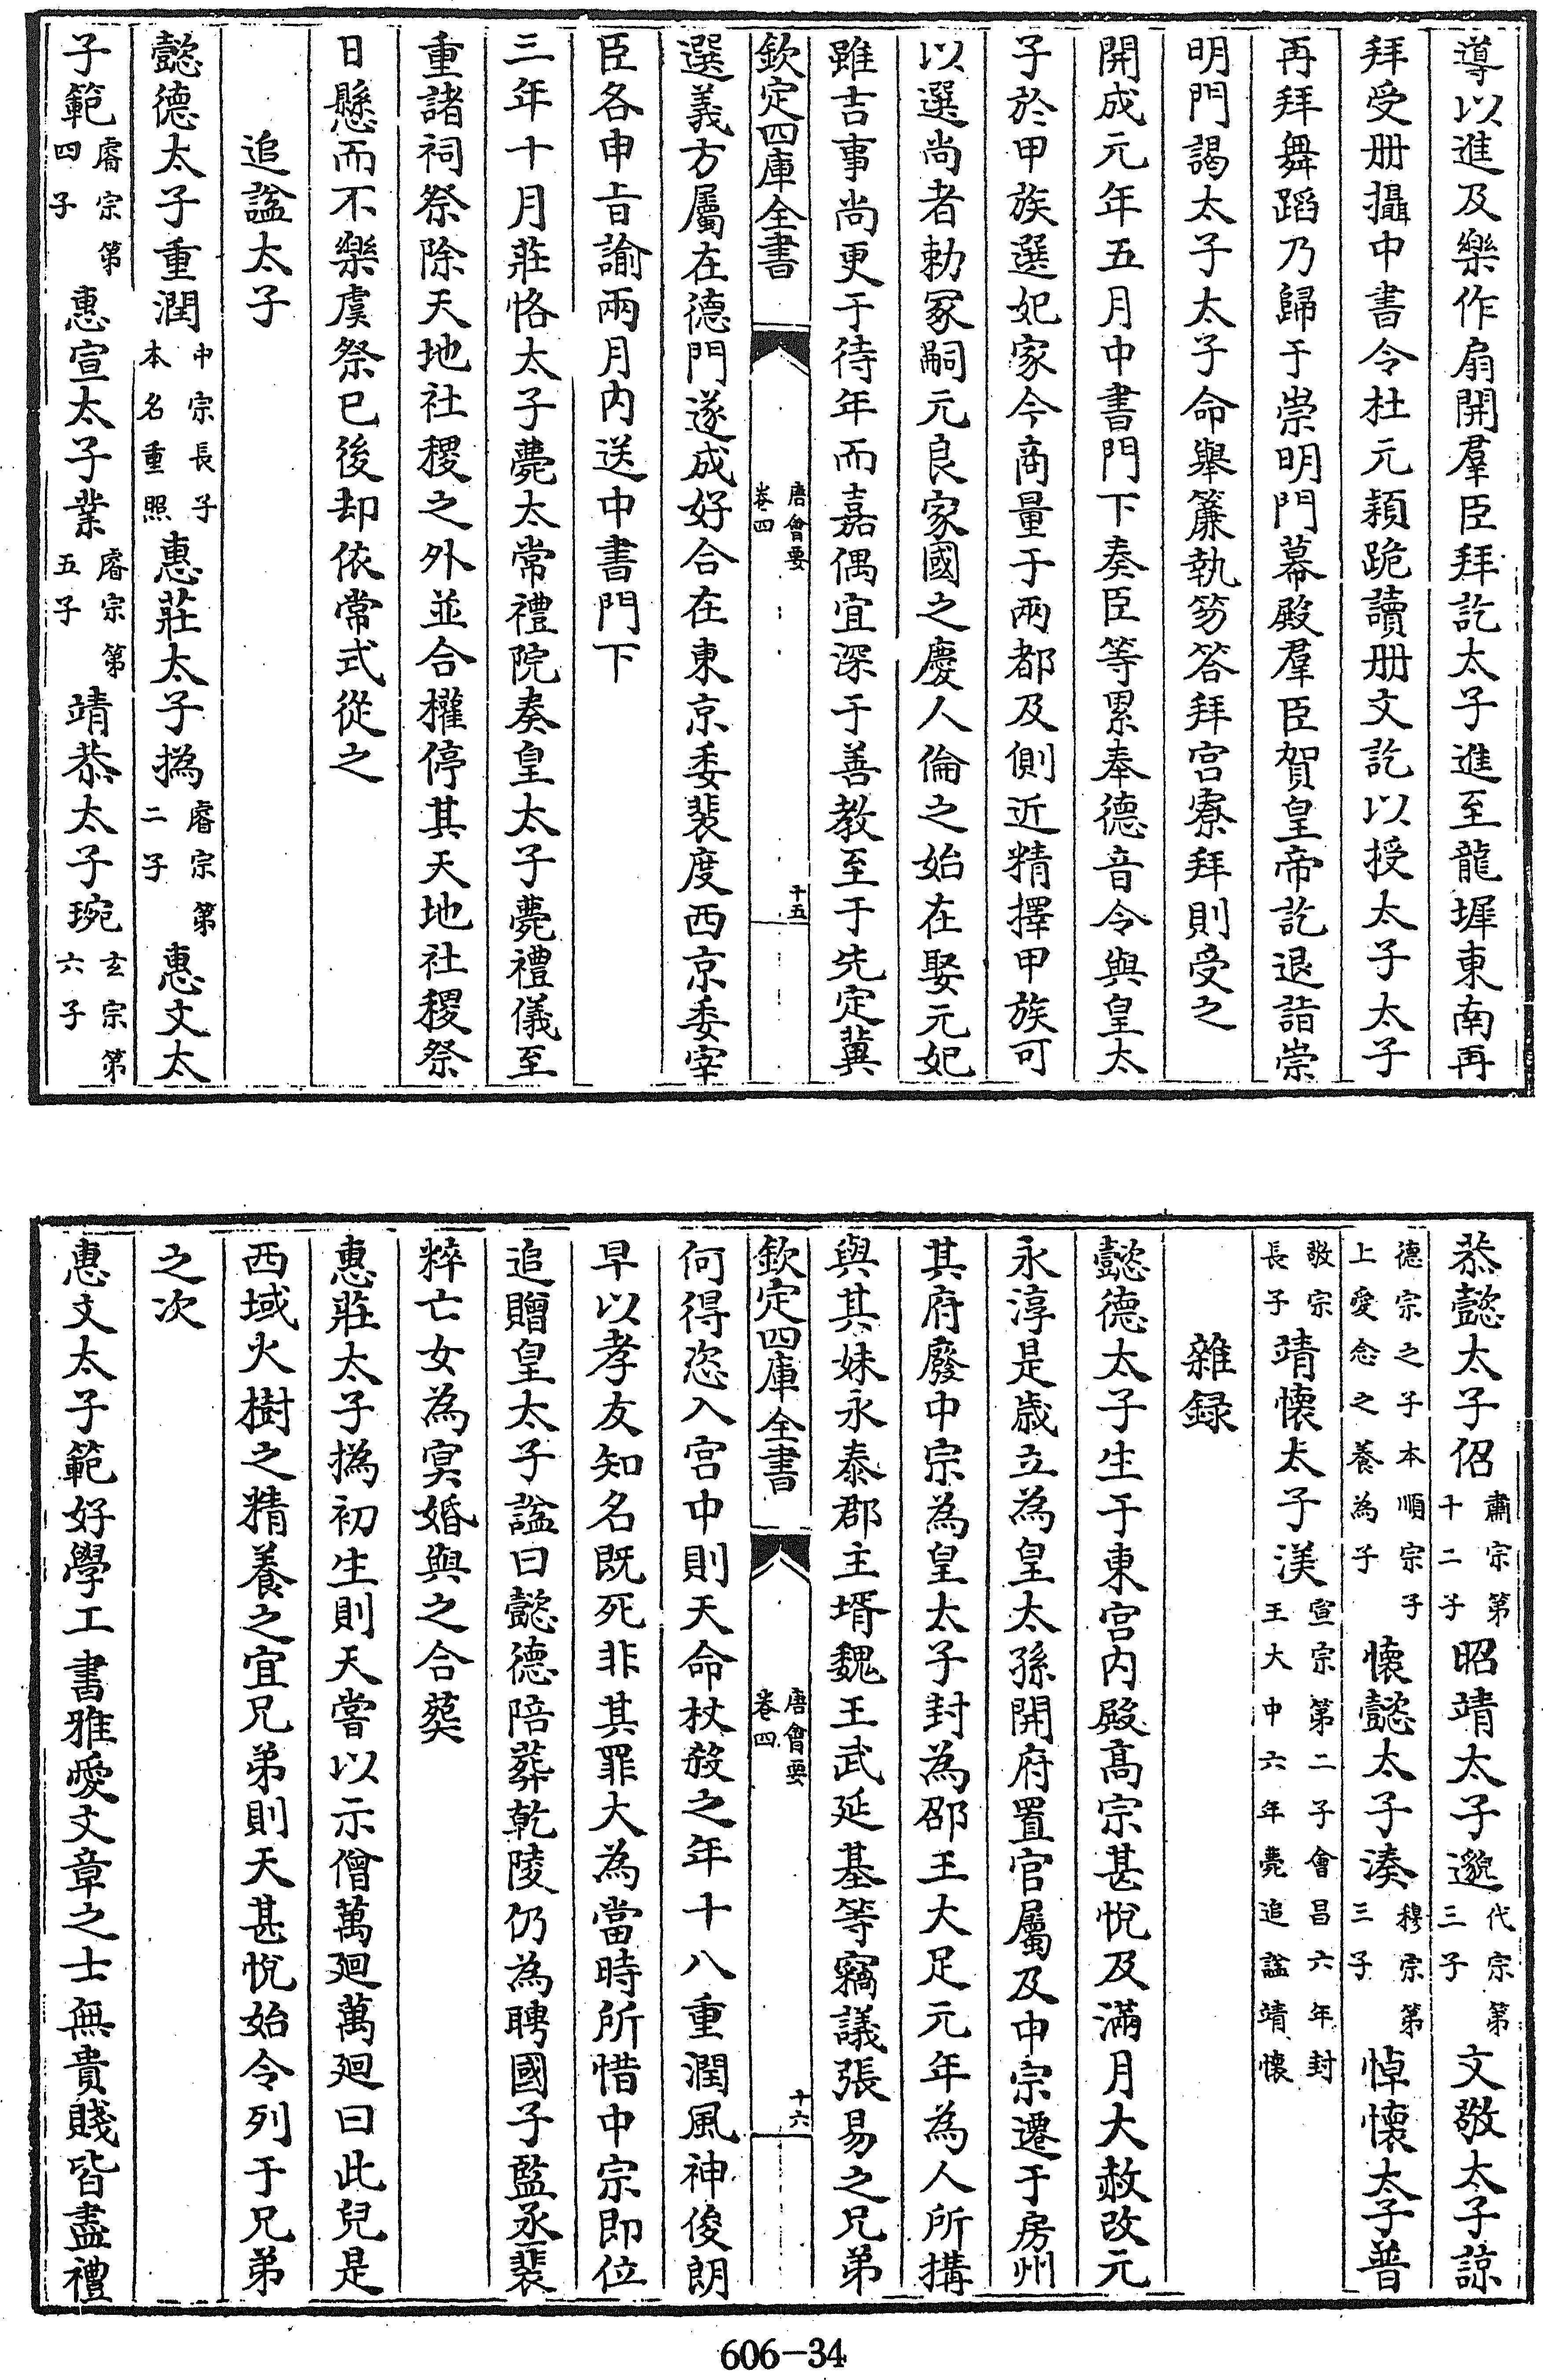 導以進及樂作扇開羣臣拜訖太子進至龍墀東南再
拜受册攝中書令杜元穎跪讀册文訖以授太子太子
再拜舞蹈乃歸于崇明門幕殿羣臣賀皇帝訖退詣崇
明門謁太子太子命舉簾執笏答拜宫寮拜則受之
開成元年五月中書門下奏臣等累奉德音令與皇太
子於甲族選妃家今商量于兩都及側近精擇甲族可
以選尚者勅冢嗣元良家國之慶人倫之始在娶元妃
雖吉事尚更于待年而嘉偶宜深于善教至于先定冀
欽定四庫全書
唐會要
卷四
十五
選義方屬在德門遂成好合在東京委裴度西京委宰
臣各申㫖諭兩月内送中書門下
三年十月莊恪太子薨太常禮院奏皇太子薨禮儀至
重諸祠祭除天地社稷之外並合權停其天地社稷祭
日懸而不樂虞祭已後却依常式從之
追諡太子
懿德太子重潤中宗長子本名重照惠莊太子撝睿宗第二子惠文太
子範睿宗第四子惠宣太子業睿宗第五子靖恭太子琬玄宗第六子
恭懿太子佋肅宗第十二子昭靖太子邈代宗第三子文敬太子諒
德宗之子本順宗子上愛念之養為子懷懿太子湊穆宗第三子悼懷太子普
敬宗長子靖懷太子渼宣宗第二子會昌六年封王大中六年薨追諡靖懷
雜録
懿德太子生于東宫内殿髙宗甚悅及滿月大赦改元
永淳是歳立為皇太孫開府置官屬及中宗遷于房州
其府廢中宗為皇太子封為邵王大足元年為人所搆
與其妹永泰郡主壻魏王武延基等竊議張易之兄弟
欽定四庫全書
唐會要
卷四
十六
何得恣入宫中則天命杖殺之年十八重潤風神俊朗
早以孝友知名既死非其罪大為當時所惜中宗即位
追贈皇太子諡曰懿德陪葬乾陵仍為聘國子監丞裴
粹亡女為冥婚與之合葬
惠莊太子撝初生則天嘗以示僧萬廻萬廻曰此兒是
西域火樹之精養之宜兄弟則天甚悅始令列于兄弟
之次
惠文太子範好學工書雅愛文章之士無貴賤皆盡禮
606-34